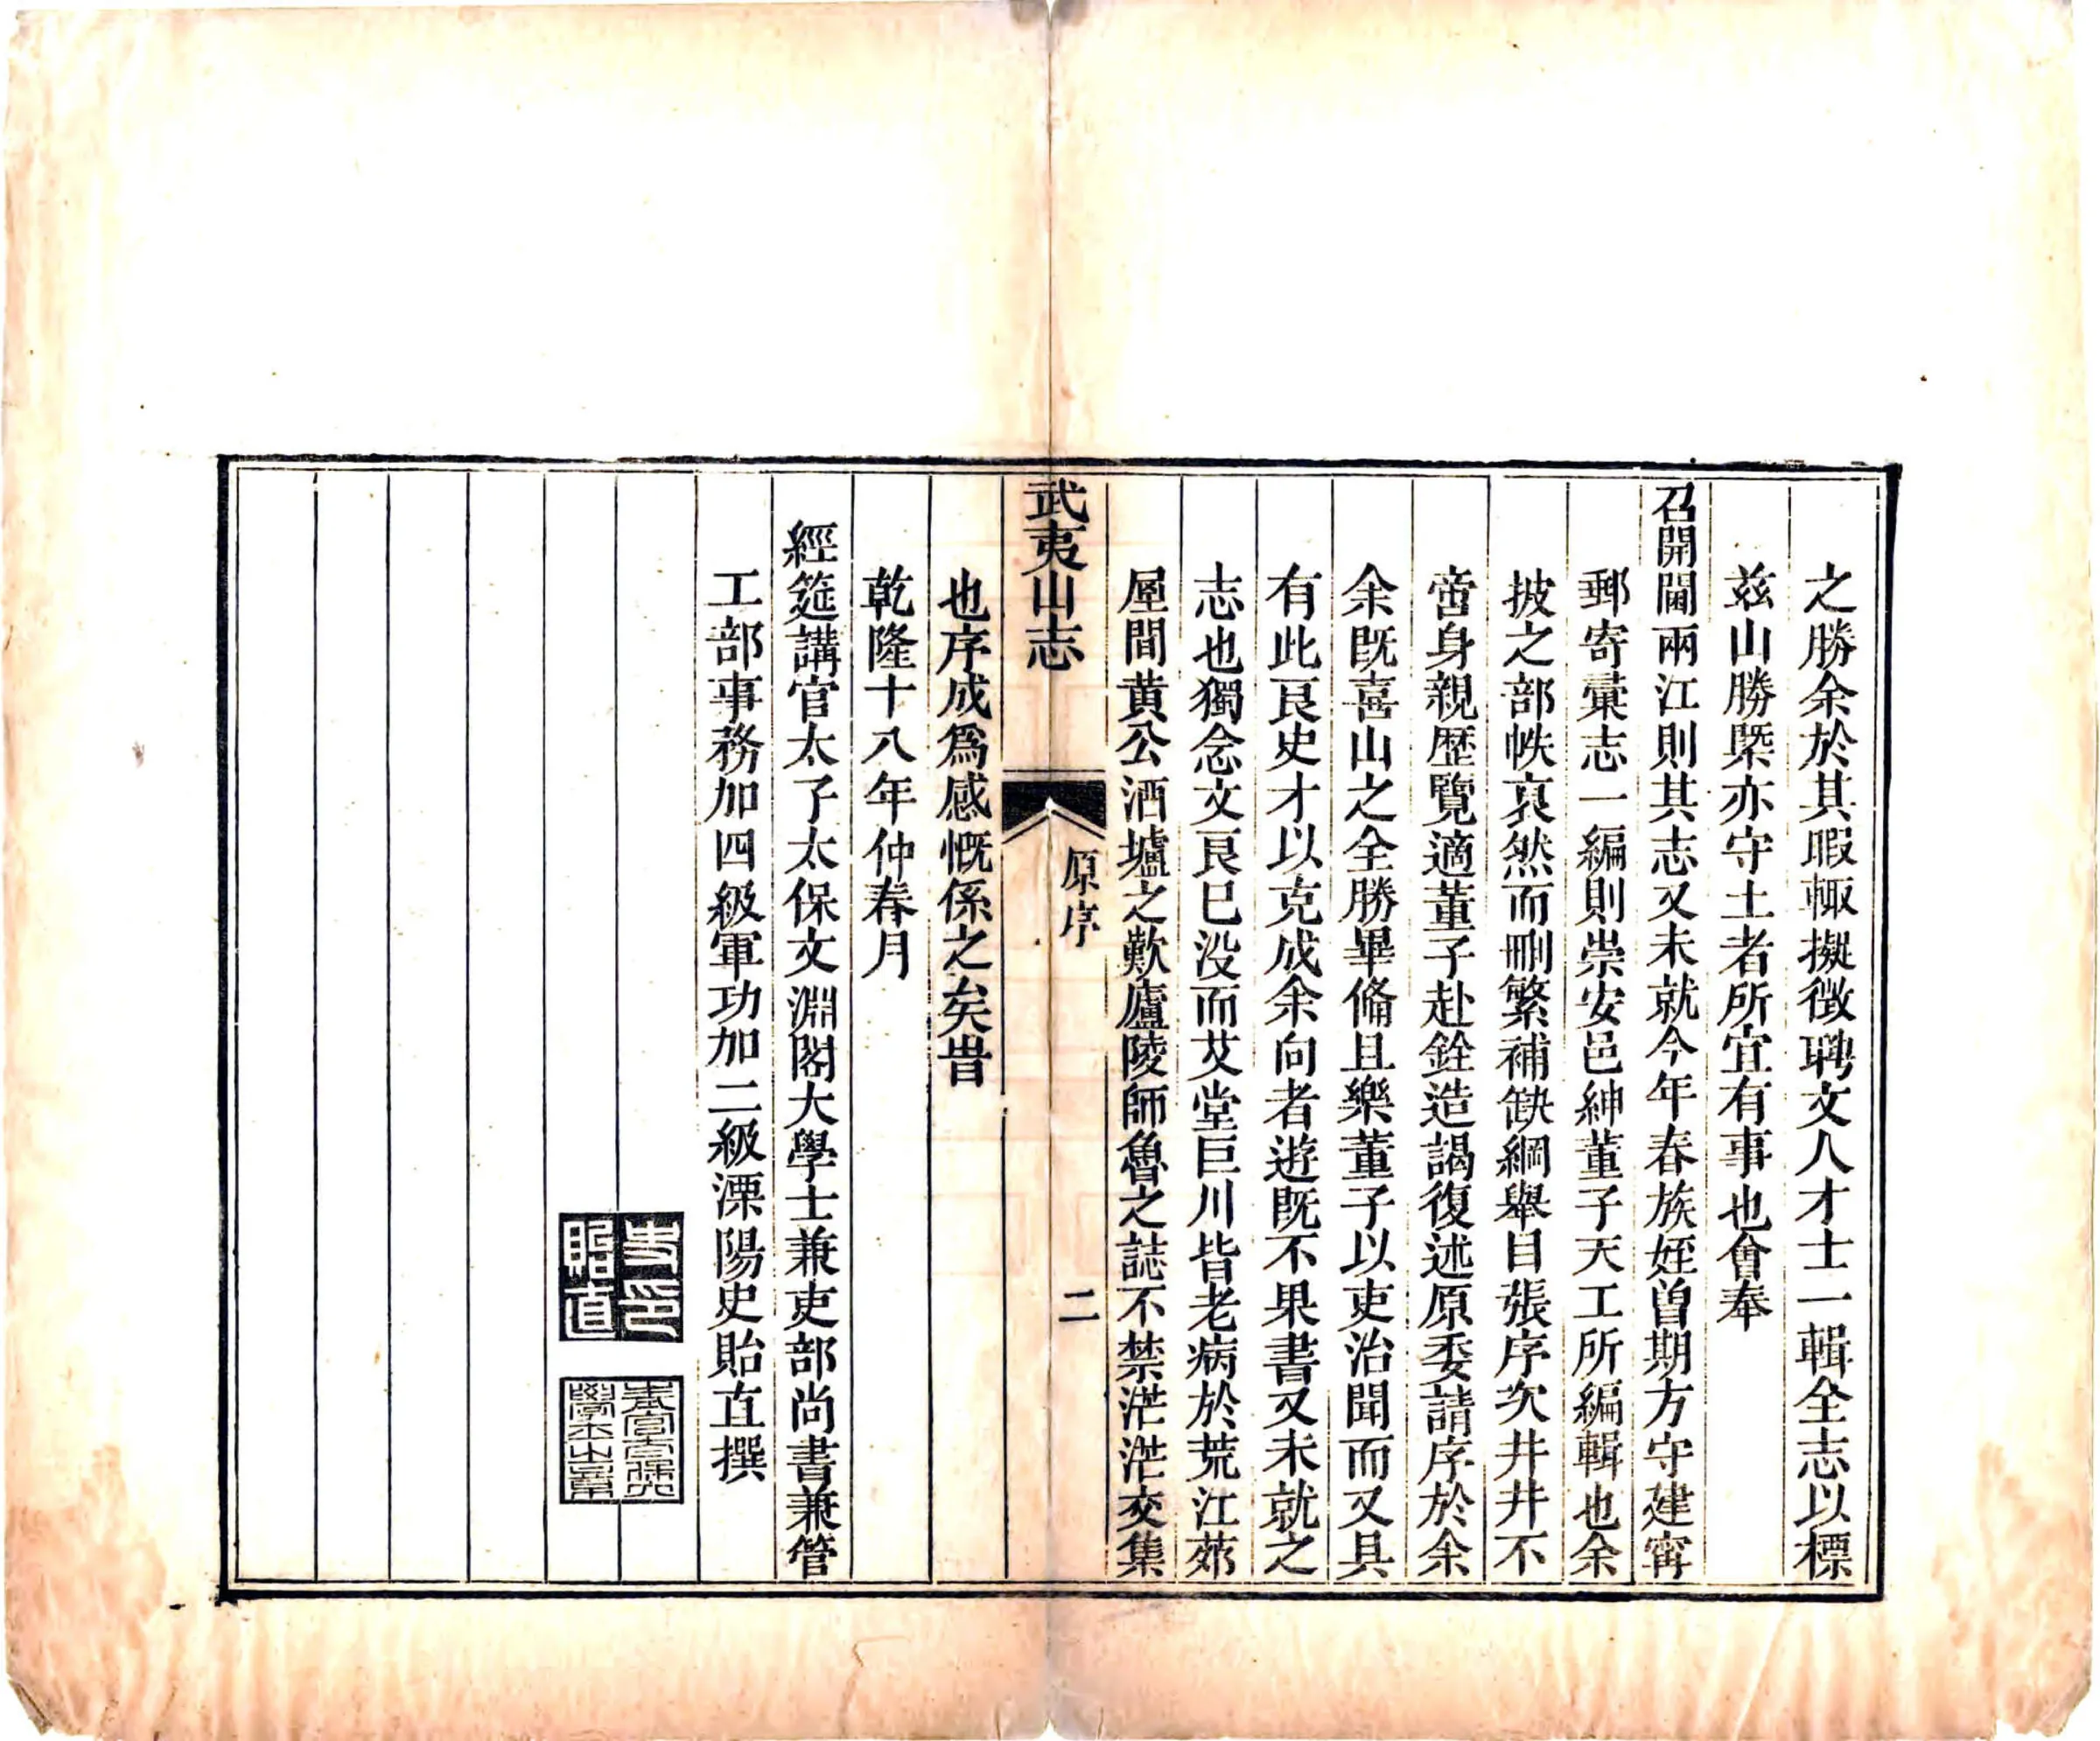 之勝余於其暇輙擬徴聘文人才士一輯全志以標
兹山勝槩亦守土者所宜有事也會奉
召開閫兩江則其志又未就今年春族姪曽期方守建寗
郵寄彙志一編則崇安邑紳董子天工所編輯也余
披之部帙裒然而刪繁補缺綱舉目張序次井井不
啻身親歴覽適董子赴銓造謁復述原委請序於余
余既喜山之全勝畢俻且樂董子以吏治聞而又具
有此良史才以克成余向者遊既不果書又未就之
志也獨念文良已没而艾堂巨川皆老病於荒江茆
屋間黄公酒壚之歎廬陵師魯之誌不禁茫茫交集
武夷山志
原序
二
也序成爲感慨係之矣旹
乾隆十八年仲春月
經筵講官太子太保文淵閣大學士兼吏部尚書兼管
工部事務加四級軍功加二級溧陽史貽直撰
史印
貽直